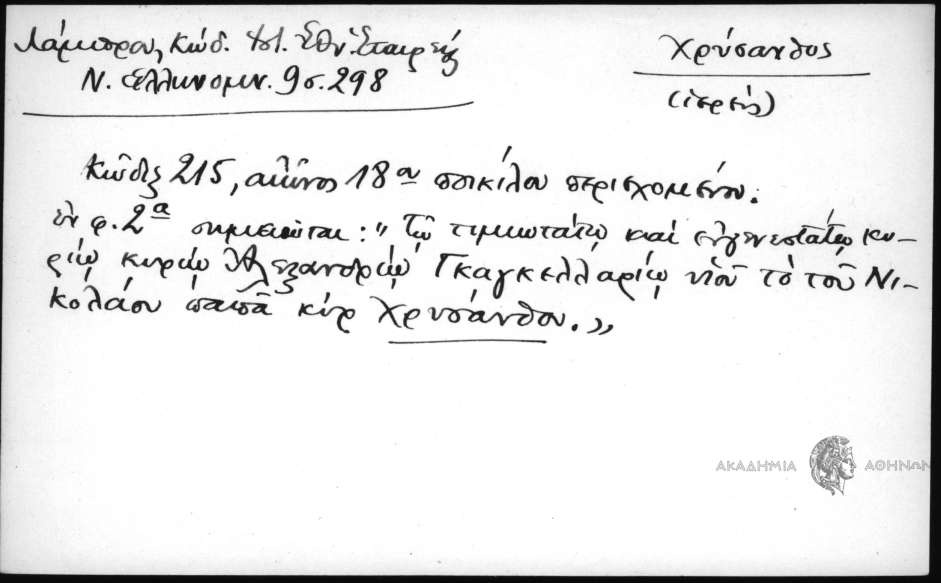 Λάμπρου, Κώδ. Ἱστ. Ἐθν. Ἑταιρείας
Ν. Ἑλληνομν. 9 σ. 298
Χρύσανθος
(ἱερεύς)
Κῶδιξ 215, αἰῶνος 18ου ποικίλου περιεχομένου.
ἐν φ. 2α σημειοῦται: "Τῷ τιμιωτάτῳ καὶ εὐγενεστάτῳ κυ-
ρίῳ κυρίῳ Ἀλεξανδρίῳ Γκαγκελλαρίῳ υἱοῦ τὸ τοῦ Νι-
κολάου παπᾶ κὺρ Χρυσάνθου."
ΑΚΑΔΗΜΙΑ ΑΘΗΝΩΝ